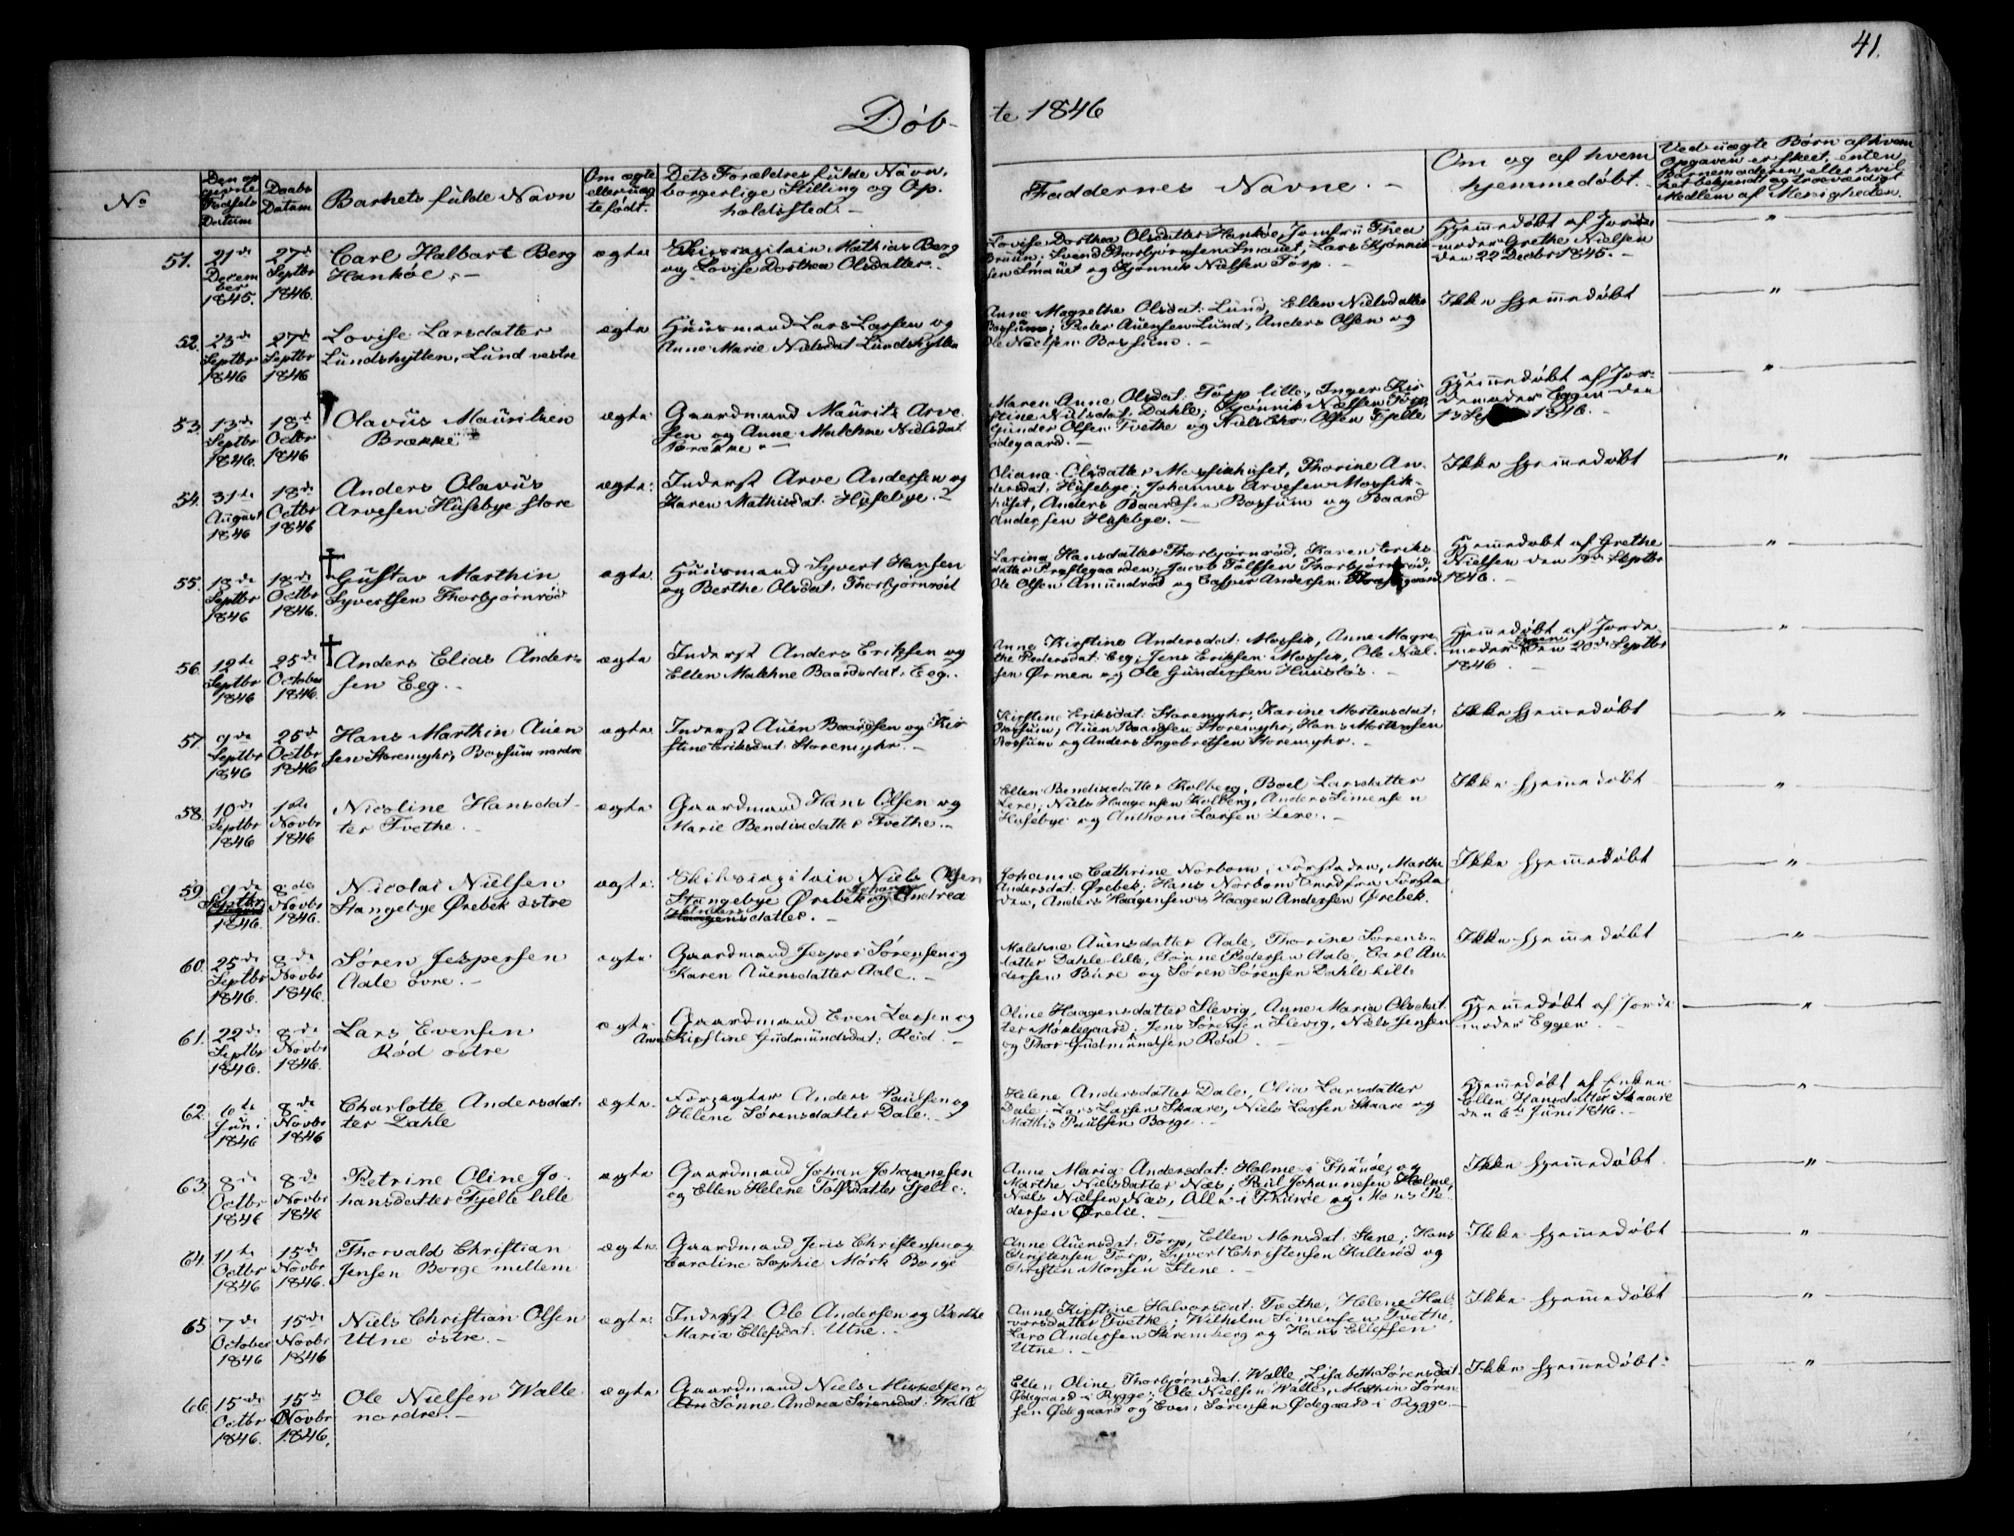 41.
Døbte 1846
No
Den opgivne Fødsels Datum
Daabs Datum
Barnets fulde Navn
Om ægte eller uægte født.
Dets Forældres fulde Navn, borgerlige Stilling og Opholdssted.
Faddernes Navne.
Om og af hvem hjemmedøbt.
Ved uægte Børn af hvem Opgaven er skeet, enten Barnemoderen eller hvilket bekjendt og troværdigt Medlem af Menigheden.
51. 21de December 1845. 27de Septbr 1846.
Carl Halbart Berg
Hankøe.
ægte
Skibscapitain Mathias Berg
og Lovise Dorthea Olsdatter.
Lovise Dorthea Olsdatter Hankøe, Jomfru Thea
Bruun, Svend Thorbjørnsen Smauet, Lars Kjønnik
sen Smauet og Kjønnik Nielsen Torp.
Hjemmedøbt af Jorde
moder Grethe Nielsen
den 22 Decbr 1845.
"
52. 23de Septbr 1846 27de Septbr 1846
Lovise Larsdatter
Lundshytten, Lund vestre
ægte
Huusmand Lars Larsen og
Anne Marie Nielsdat. Lundshytten
Anne Magrethe Olsdat. Lund, Ellen Nielsdatter
Bossum; Peder Auensen Lund, Anders Olsen og
Ole Nielsen Bossum.
Ikke hjemmedøbt
"
53. 13de Septbr 1846. 18de Octbr 1846
Olavus Mauritzen
Brække
ægte
Gaardmand Mauritz Arve
sen og Anne Malehne Nielsdat
Brække.
Maren Anne Olsdat. Torp lille, Inger Kir
stine Nielsdat. Dahle; Kjønnik Nielsen Torp,
Gunder Olsen Tvethe og Niels Chr. Olsen Fjelle
ødegaard.
Hjemmedøbt af Jor-
demoder Eggen den
13 Sept 1846.
"
54. 31te August 1846 18de Octbr 1846
Anders Olavus
Arvesen Husebye store
ægte
Inderst Arve Andersen og
Karen Mathisdat. Husebye.
Oliana Olsdatter Mossikhuset, Thorine An
dersdat. Husebye; Johannes Arvesen Mossik-
huset, Anders Baardsen Bossum og Baard
Andersen Husebye.
Ikke hjemmedøbt
"
55. 18de Septbr 1846 18de Octbr 1846.
Gustav Marthin
Syvertsen Thorbjørnrød
ægte
Huusmand Syvert Hansen
og Berthe Olsdat. Thorbjørnrød
Larina Hansdatter Thorbjørnrød, Karen Eriks
datter Præstegaarden; Jacob Tolfsen Thorbjørnrød,
Ole Olsen Amundrød og Casper Andersen
Hjemmedøbt af Grethe
Nielsen den 19de Septbr
1846.
"
56. 12te Septbr 1846 25de October 1846.
Anders Elias Ander-
sen Eeg.
ægte
Inderst Anders Eriksen og
Ellen Malehne Baardsdat. Eeg.
Anne Kirstine Andersdat. Mossik, Anne Magre
the Pedersdat. Eeg; Jens Eriksen Mossik, Ole Niel-
sen Ørmen og Ole Gundersen Huusløs.
Hjemmedøbt af Jorde
moder Eggen den 20de Septbr
1846
"
57. 9de Septbr 1846 25de Octbr 1846
Hans Marthin Auen
sen Storemyhr, Bossum nordre
ægte
Inderst Auen Baardsen og Kir
stine Eriksdat. Storemyhr.
Kirstine Eriksdat. Storemyhr, Karine Mortensdat.
Bossum; Auen Baardsen Storemyhr, Hans Mortensen
Bossum og Anders Ingebretsen Storemyhr.
Ikke hjemmedøbt
"
58. 10de Septbr 1846 1ste Novbr 1846
Nicoline Hansdat-
ter Tvethe.
ægte
Gaardmand Hans Olsen og
Marie Bendixdatter Tvethe.
Ellen Bendixdatter Kolberg, Boel Larsdatter
Lere; Niels Haagensen Kolberg, Anders Simensen
Husebye og Anthoni Larsen Lere.
Ikke hjemmedøbt
"
59. 9de Septbr 1846. 8de Novbr 1846.
Nicolai Nielsen
Stangebye Ørebek østre
ægte
Skibscapitain Niels Olsen
Stangebye Ørebek og Johanne Andrea
Andersdatter.
Johanne Cathrine Norbom i Forstaden, Marthe
Andersdat. Ørebek; Hans Norbom fra Forsta
den, Anders Haagensen, Haagen Andersen Ørebek.
Ikke hjemmedøbt
"
60. 25de Septbr 1846. 8de Novbr 1846.
Søren Jespersen
Aale øvre.
ægte
Gaardmand Jesper Sørensen og
Karen Auensdatter Aale.
Malehne Auensdatter Aale, Thorine Sørens-
datter Dahle lille, Pedersen Aale, Carl An
dersen Bure og Søren Sørensen Dahle lille
Ikke hjemmedøbt
"
61. 22de Septbr 1846. 8de Novbr 1846.
Lars Evensen
Rød østre
ægte
Gaardmand Even Larsen og
Anne Kirstine Gudmundsdat. Rød.
Oline Haagensdatter Slevig, Anne Maria Olsdat
ter Mørkegaard; Jens Sørensen Slevig, Niels Jensen
og Thor Gudmundsen Rød
Hjemmedøbt af Jorde
moder Eggen
"
62. 6te Juni 1846 8de Novbr 1846
Charlotte Andersdat.
ter Dahle
ægte
Forpagter Anders Paulsen og
Helene Sørensdatter Dale.
Helene Andersdatter Dale, Olia Larsdatter
Dale; Lars Larsen Skaare, Niels Larsen Skaare og
Mathis Paulsen Borge.
Hjemmedøbt af Enken
Ellen Hansdatter Skaare
den 6te Juni 1846.
"
63. 8de Octbr 1846 8de Novbr 1846
Petrine Oline Jo-
hansdatter Fjelle lille
ægte
Gaardmand Johan Johannesen
og Ellen Helene Tolfsdatter Fjelle.
Anne Maria Andersdat. Holme i Thunøe, og
Marthe Nielsdatter Næs; Paul Johannesen Holme,
Niels Nielsen Næs, Alle i Thunøe og Mons Pe-
dersen Ørelie.
Ikke hjemmedøbt
"
64. 11te Octbr 1846 15de Novbr 1846.
Thorvald Christian
Jensen Borge mellem
ægte
Gaardmand Jens Christensen og
Caroline Sophie Mørk Borge
Anne Auensdat. Torp, Ellen Monsdat. Stene; Hans
Christensen Torp, Syvert Christensen Kallerød og
Christen Monsen Stene.
Ikke hjemmedøbt
"
65. 7de October 1846 15de Novbr 1846
Niels Christian Olsen
Utne østre.
ægte
Inderst Ole Andersen og Berthe
Maria Ellefsdat. Utne.
Anne Kirstine Halvorsdat. Tvethe, Helene Hal-
vorsdatter Tvethe; Wilhelm Simensen Tvethe,
Lars Andersen Skremberg og Hans Ellefsen
Utne.
Ikke hjemmedøbt
"
66. 15de Octbr 1846. 15de Novbr 1846.
Ole Nielsen Walle
nordre.
ægte
Gaardmand Niels Mikkelsen
Andrea Sørensdat. Walle
Ellen Oline Thorbjørnsdat. Walle, Lisabeth Sørensdat.
Ødegaard i Rygge; Ole Nielsen Walle, Mathis Søren
sen Ødegaard og Even Sørensen Ødegaard i Rygge
Ikke hjemmedøbt.
"